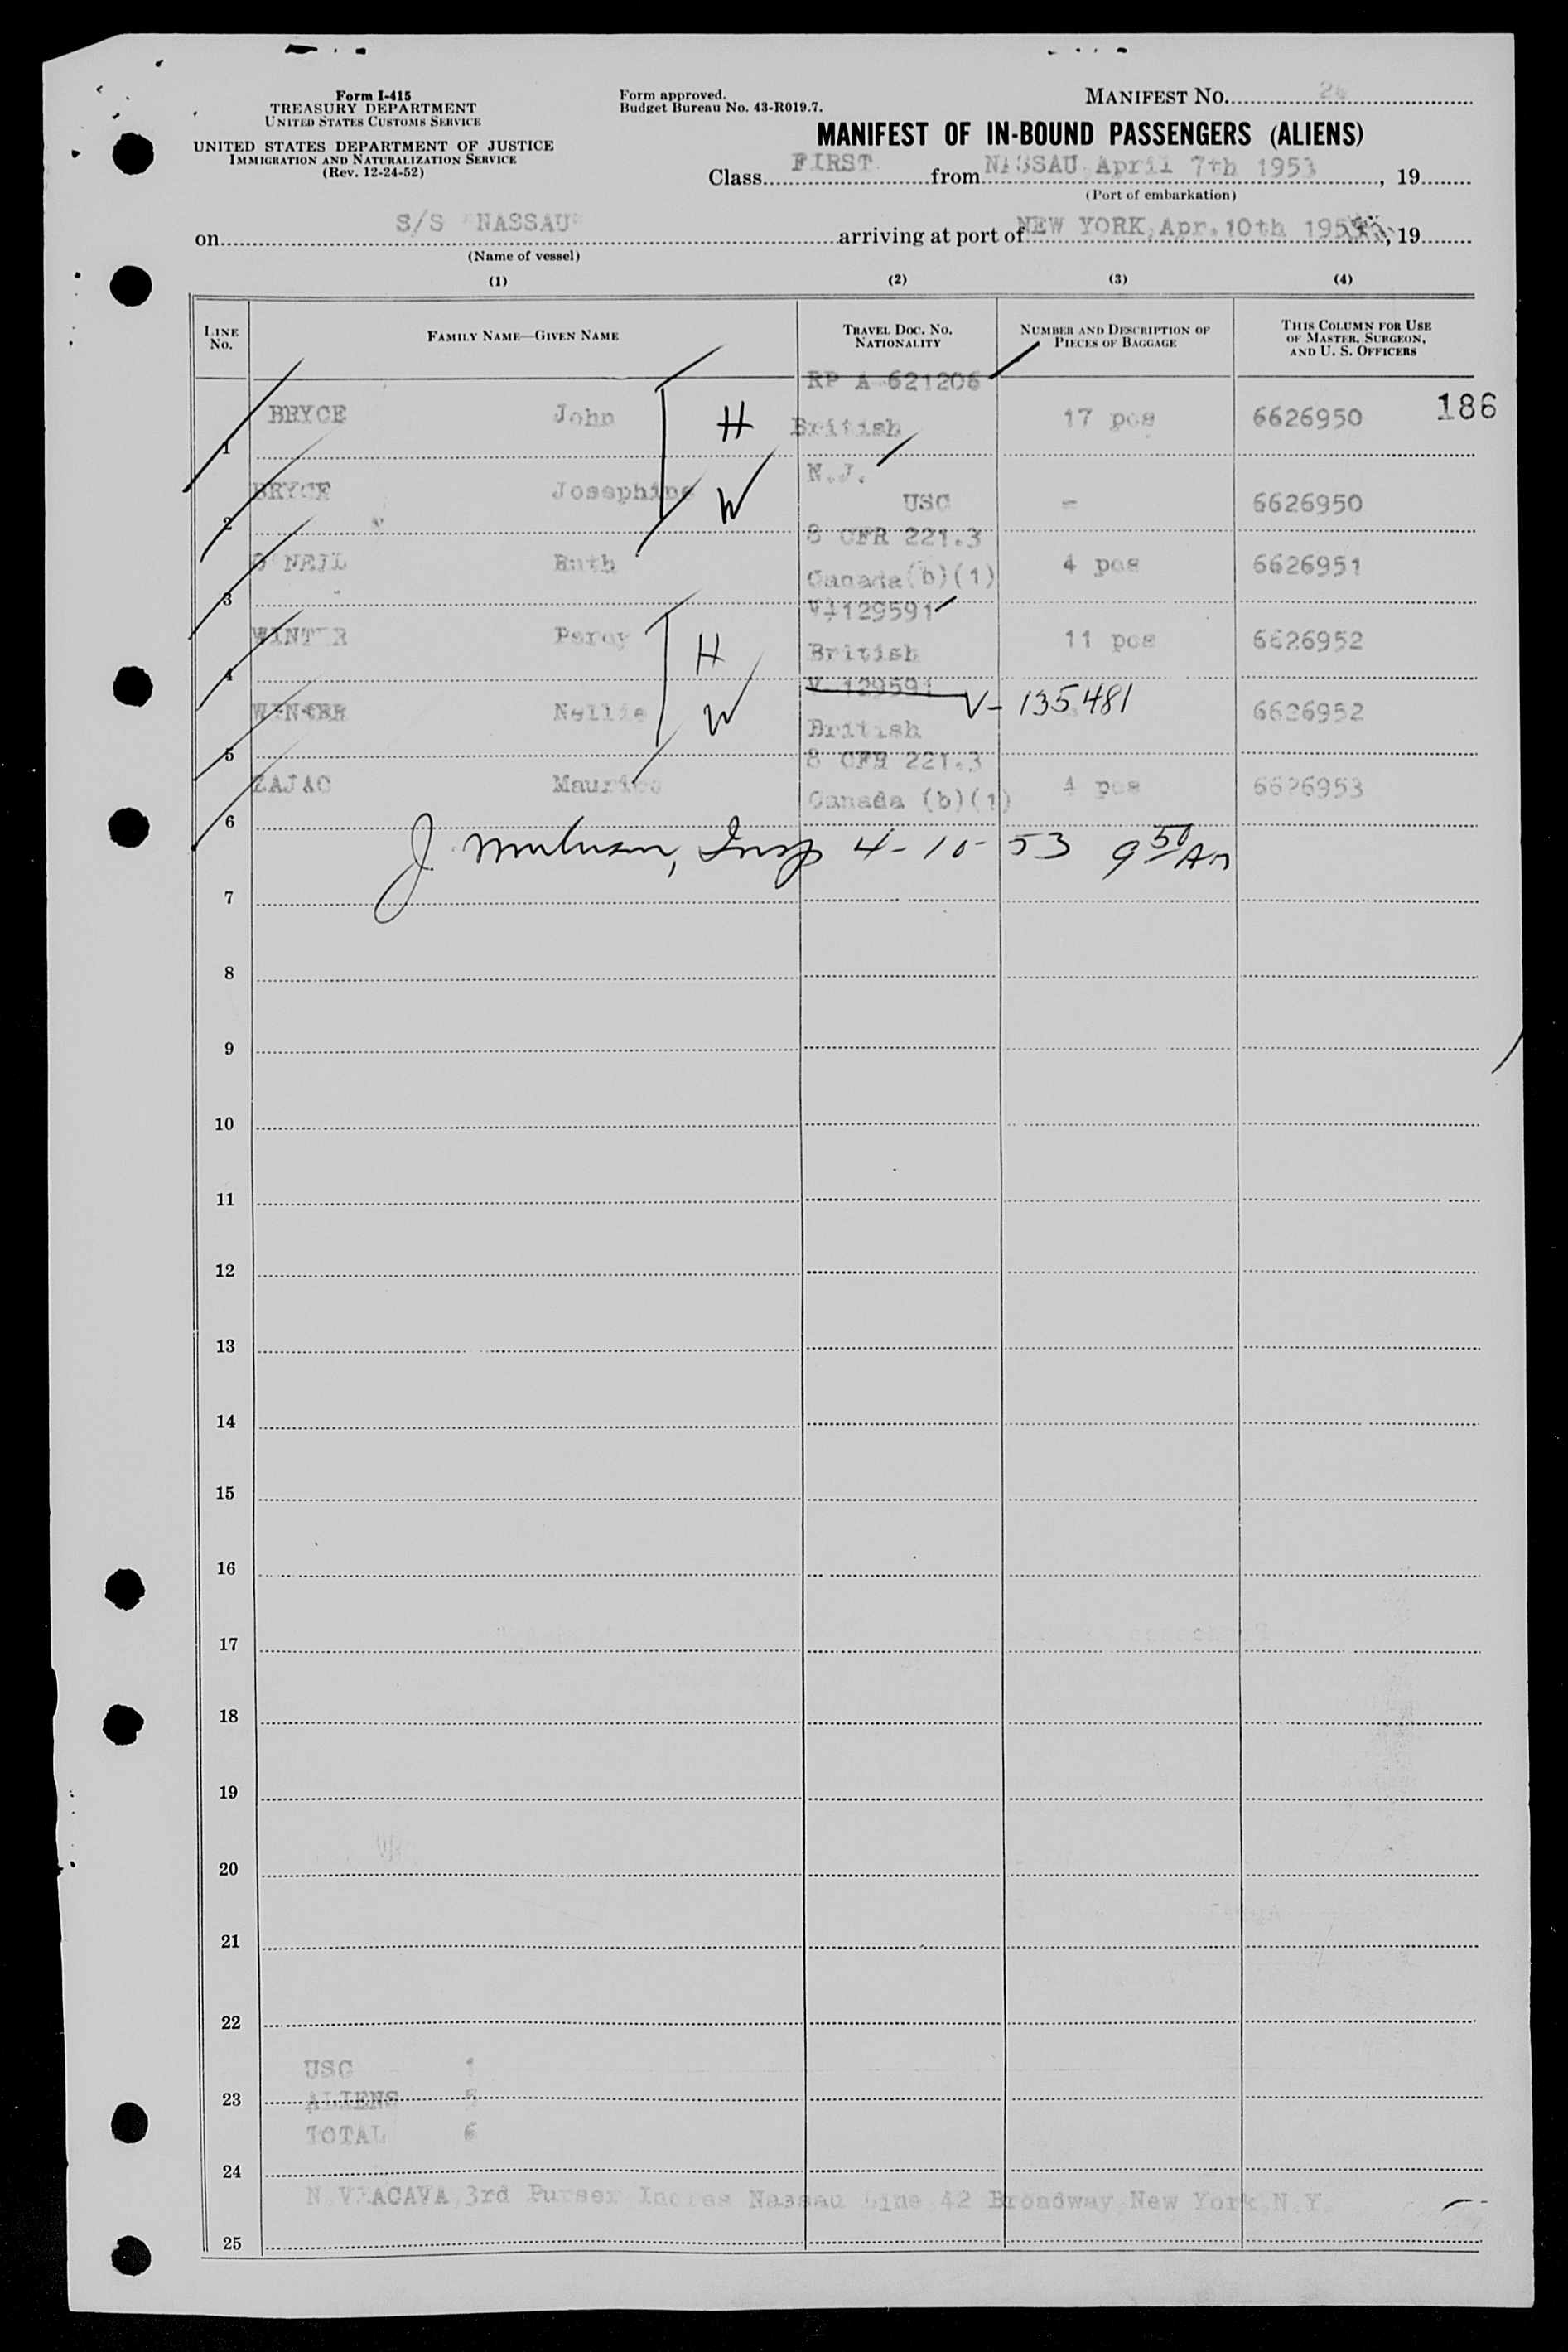 Form I-415
TREASURY DEPARTMENT
UNITED STATES CUSTOMS SERVICE
UNITED STATES DEPARTMENT OF JUSTICE
IMMIGRATION AND NATURALIZATION SERVICE
(Rev. 12-24-52)
Form approved.
Budget Bureau No. 43-R019.7.
MANIFEST NO. 24
MANIFEST OF IN-BOUND PASSENGERS (ALIENS)
Class FIRST from NASSAU April 7th 1953, 19
(Port of embarkation)
on S/S "NASSAU" arriving at port of NEW YORK, Apr. 10th 195, 19
(Name of vessel)
(1) (2) (3) (4)
LINE No. FAMILY NAME—GIVEN NAME TRAVEL DOC. NO. NATIONALITY NUMBER AND DESCRIPTION OF PIECES OF BAGGAGE THIS COLUMN FOR USE OF MASTER, SURGEON, AND U. S. OFFICERS
RP A 621206
1 BRYCE John H British 17 pcs 6626950 186
N.J.
2 BRYCE Josephine W USC - 6626950
8 CFR 221.3
3 O'NEIL Ruth Canada (b)(1) 4 pcs 6626951
V 129591
4 WINTER Percy H British 11 pcs 6626952
V 129591 V-135481
5 WINTER Nellie W British 6626952
8 CFR 221.3
6 ZAJAC Maurice Canada (b)(1) 4 pcs 6626953
J. Insp 4-10-53 9 50 AM
7
8
9
10
11
12
13
14
15
16
17
18
19
20
21
22
USC 1
23 ALIENS 5
TOTAL 6
24
3rd Purser Nassau Line 42 Broadway New York N.Y.
25